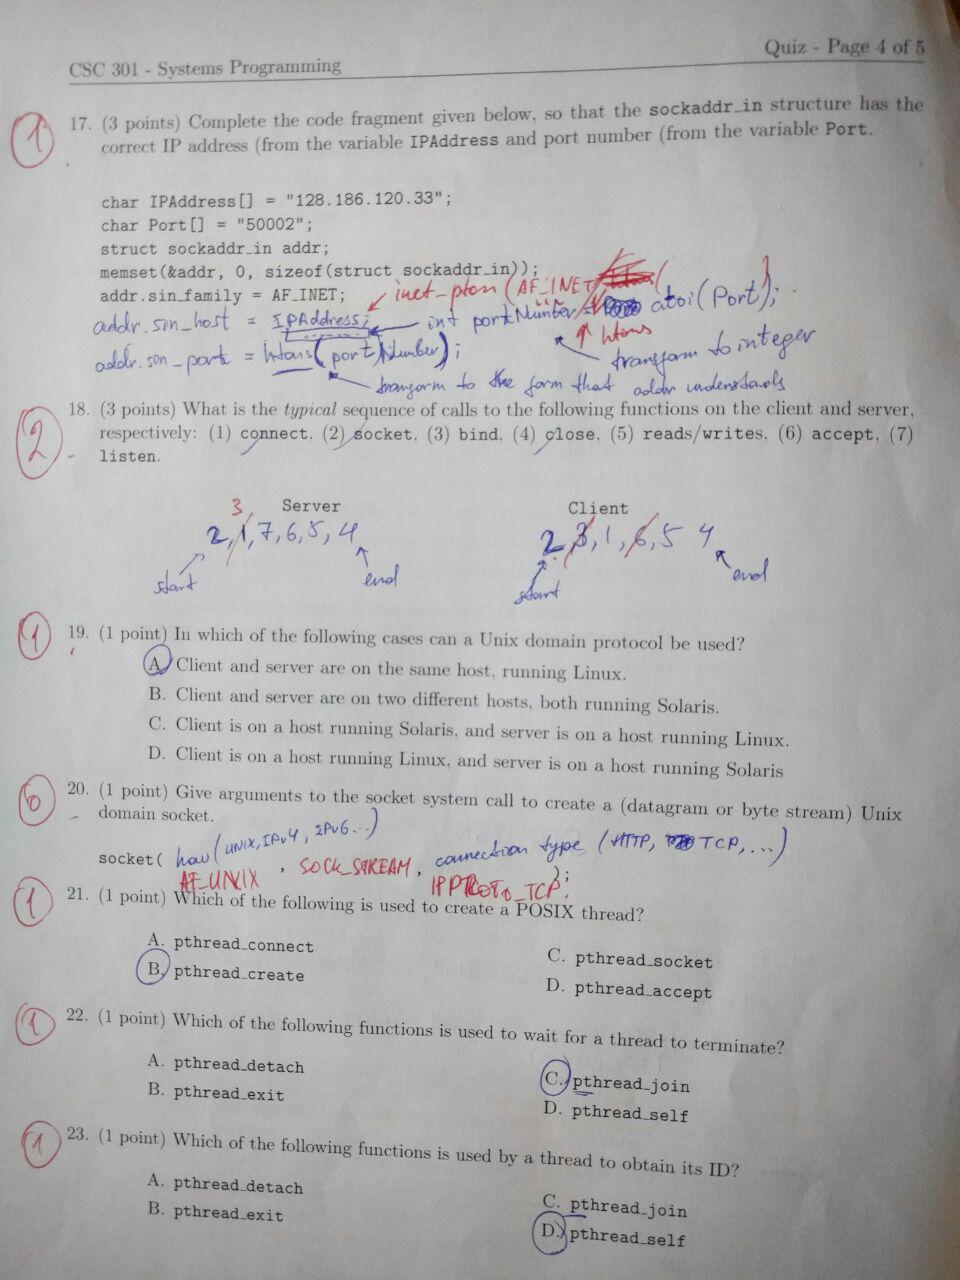 Quiz - Page 4 of 5
CSC 301 - Systems Programming
1
17. (3 points) Complete the code fragment given below, so that the sockaddr_in structure has the
correct IP address (from the variable IPAddress and port number (from the variable Port.
char IPAddress[] = "128.186.120.33";
char Port[] = "50002";
struct sockaddr_in addr;
memset(&addr, 0, sizeof(struct sockaddr_in));
addr.sin_family = AF_INET;
inet_pton (AF_INET,
addr.sin_host = IPAddress;
int portNumber = atoi(Port);
htons
transform to integer
addr.sin_port = htons(portNumber);
transform to the form that addr understands
2
18. (3 points) What is the typical sequence of calls to the following functions on the client and server,
respectively: (1) connect, (2) socket, (3) bind, (4) close, (5) reads/writes, (6) accept, (7)
listen.
Server
Client
3
2, 1, 7, 6, 5, 4
2, 3, 1, 6, 5 4
start
end
start
end
1
19. (1 point) In which of the following cases can a Unix domain protocol be used?
A. Client and server are on the same host, running Linux.
B. Client and server are on two different hosts, both running Solaris.
C. Client is on a host running Solaris, and server is on a host running Linux.
D. Client is on a host running Linux, and server is on a host running Solaris
0
20. (1 point) Give arguments to the socket system call to create a (datagram or byte stream) Unix
domain socket.
socket( how (UNIX, IPv4, IPv6...) , , connection type (HTTP, TCP, ...) );
AF_UNIX SOCK_STREAM IPPROTO_TCP
1
21. (1 point) Which of the following is used to create a POSIX thread?
A. pthread_connect
B. pthread_create
C. pthread_socket
D. pthread_accept
1
22. (1 point) Which of the following functions is used to wait for a thread to terminate?
A. pthread_detach
B. pthread_exit
C. pthread_join
D. pthread_self
1
23. (1 point) Which of the following functions is used by a thread to obtain its ID?
A. pthread_detach
B. pthread_exit
C. pthread_join
D. pthread_self